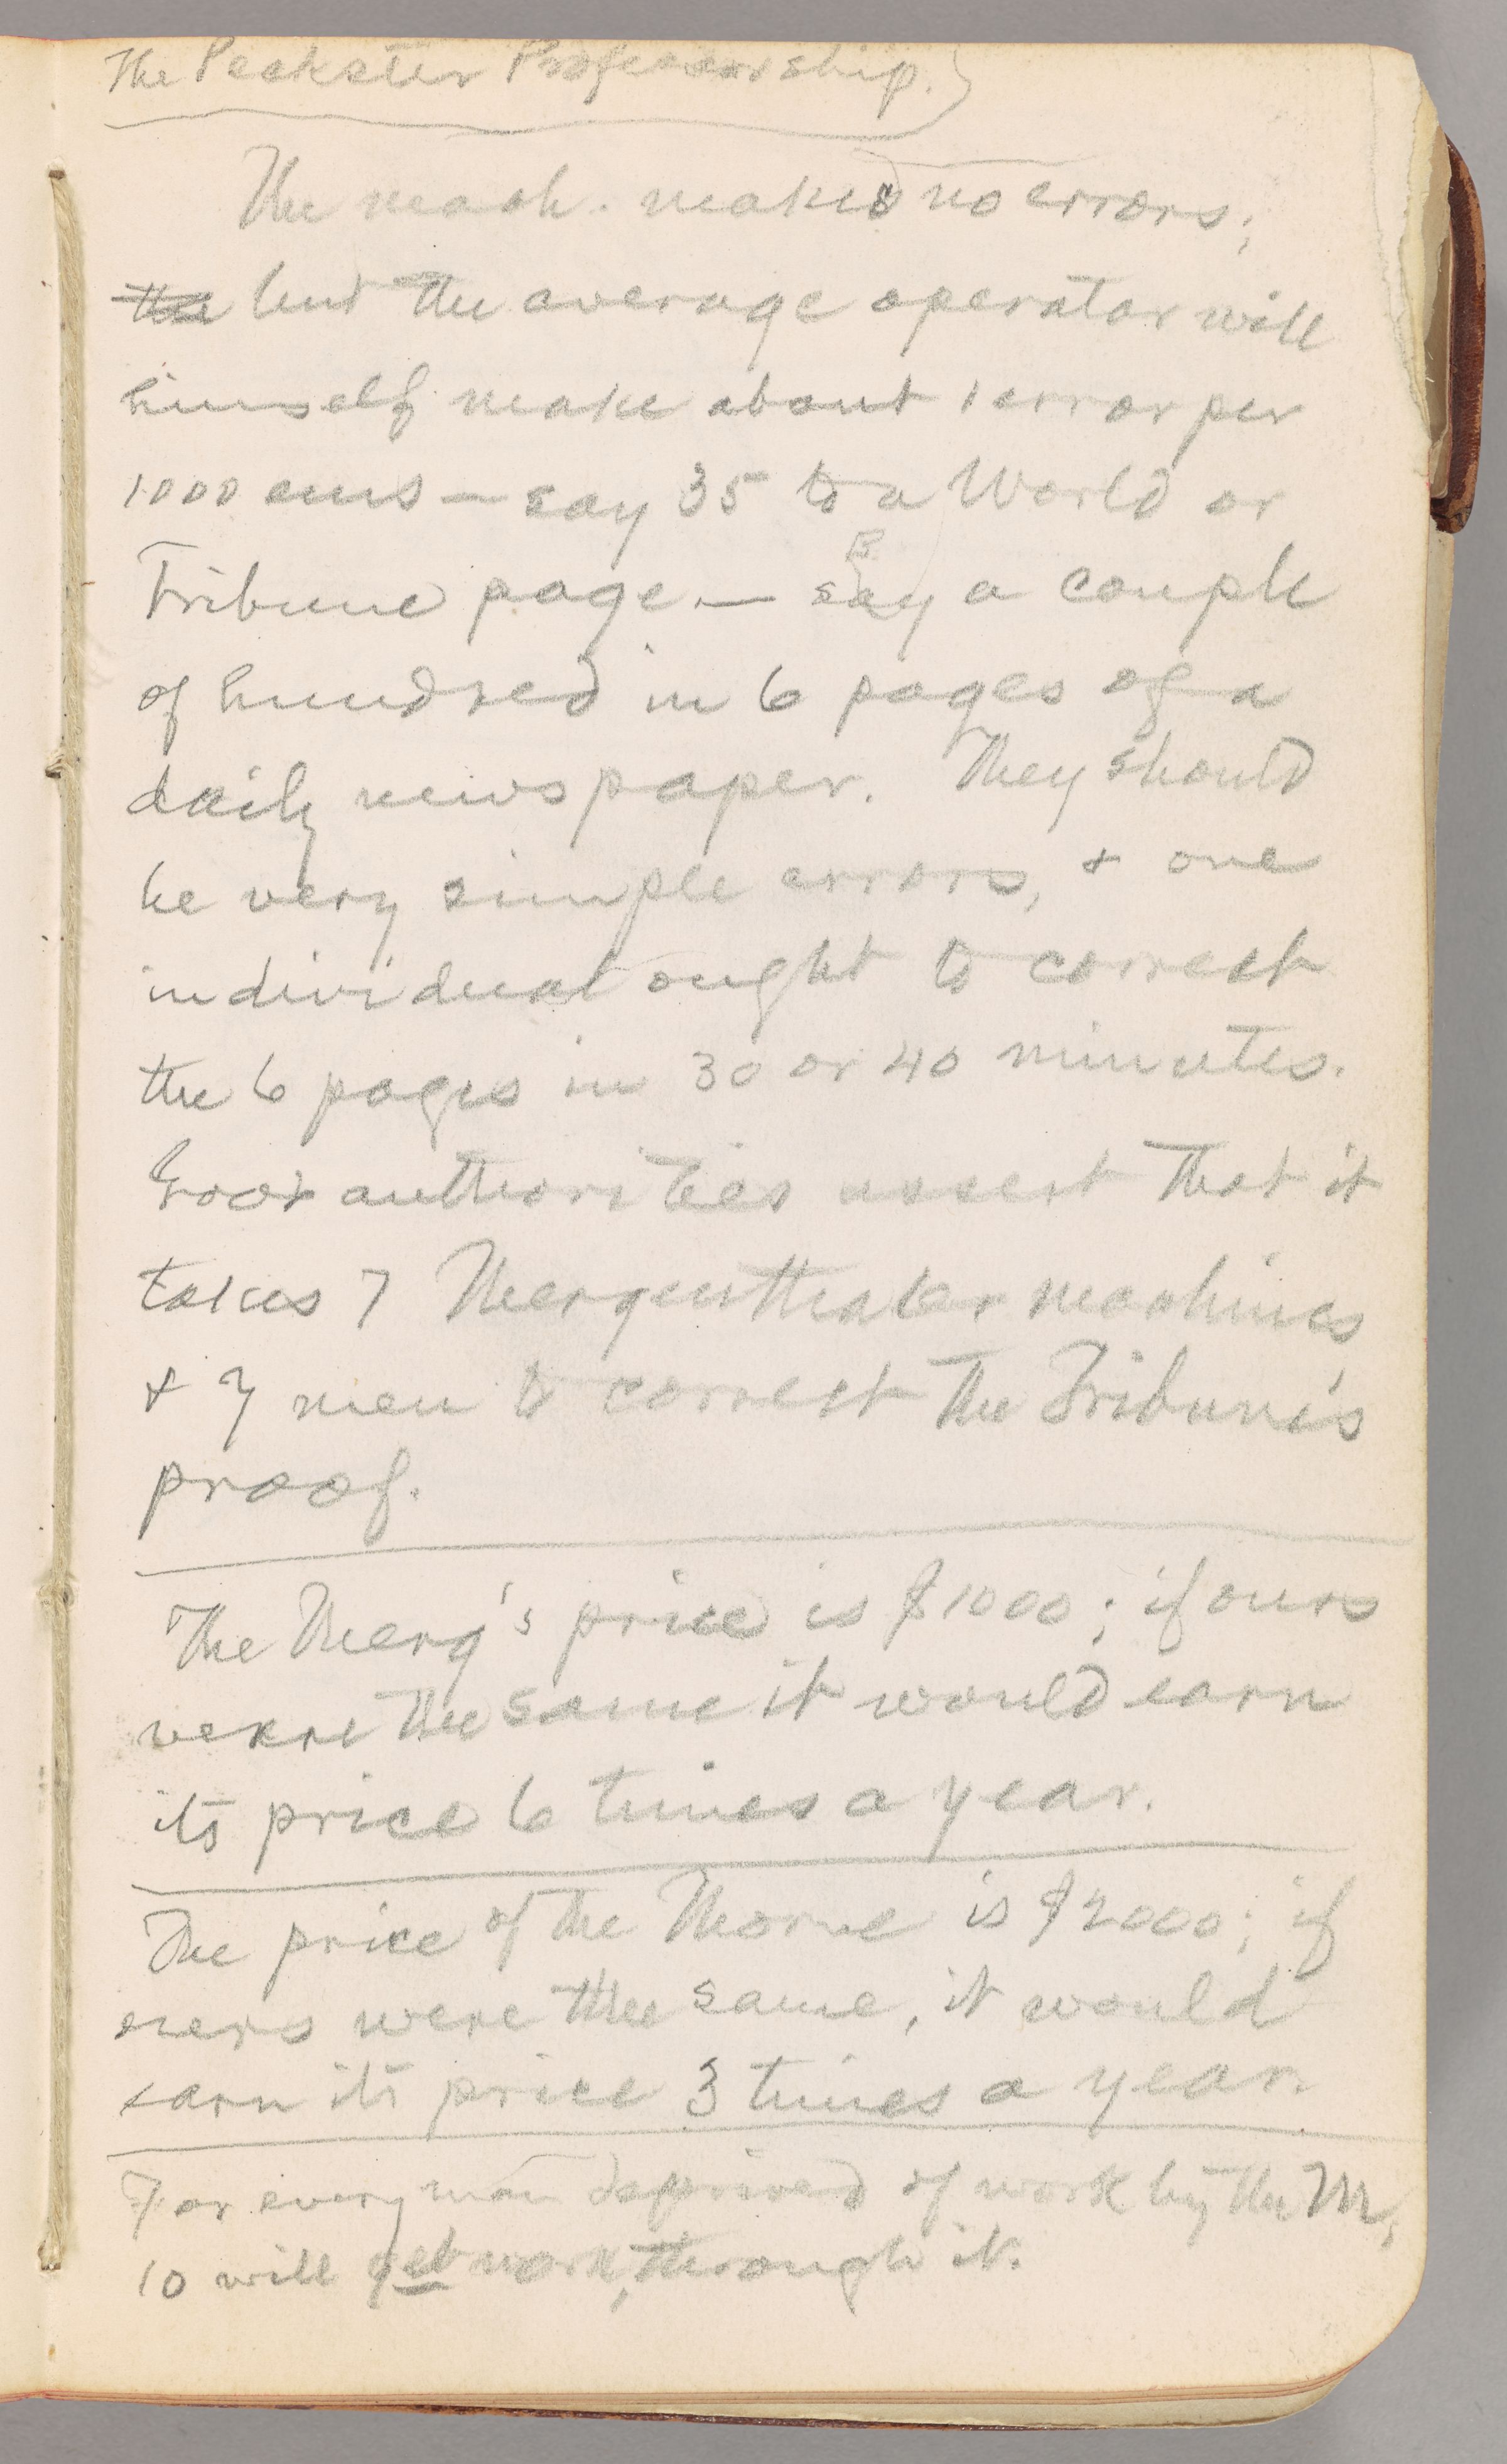 The Peckster Professorship.)
The mach. makes no errors;
the but the average operator will
himself make about 1 error per
1000 ems — say 35 to a World or
Tribune page — say a couple
of hundred in 6 pages of a
daily newspaper. They should
be very simple errors, & one
individual ought to correct
the 6 pages in 30 or 40 minutes.
Good authorities assert that it
takes 7 Mergenthaler machines
& 7 men to correct the Tribune's
proof.
The Merg's price is $1000; if ours
were the same it would earn
its price 6 times a year.
The price of the Thorne is $2000; if
ours were the same, it would
earn its price 3 times a year.
For every man deprived of work by the M,
10 will get work, through it.